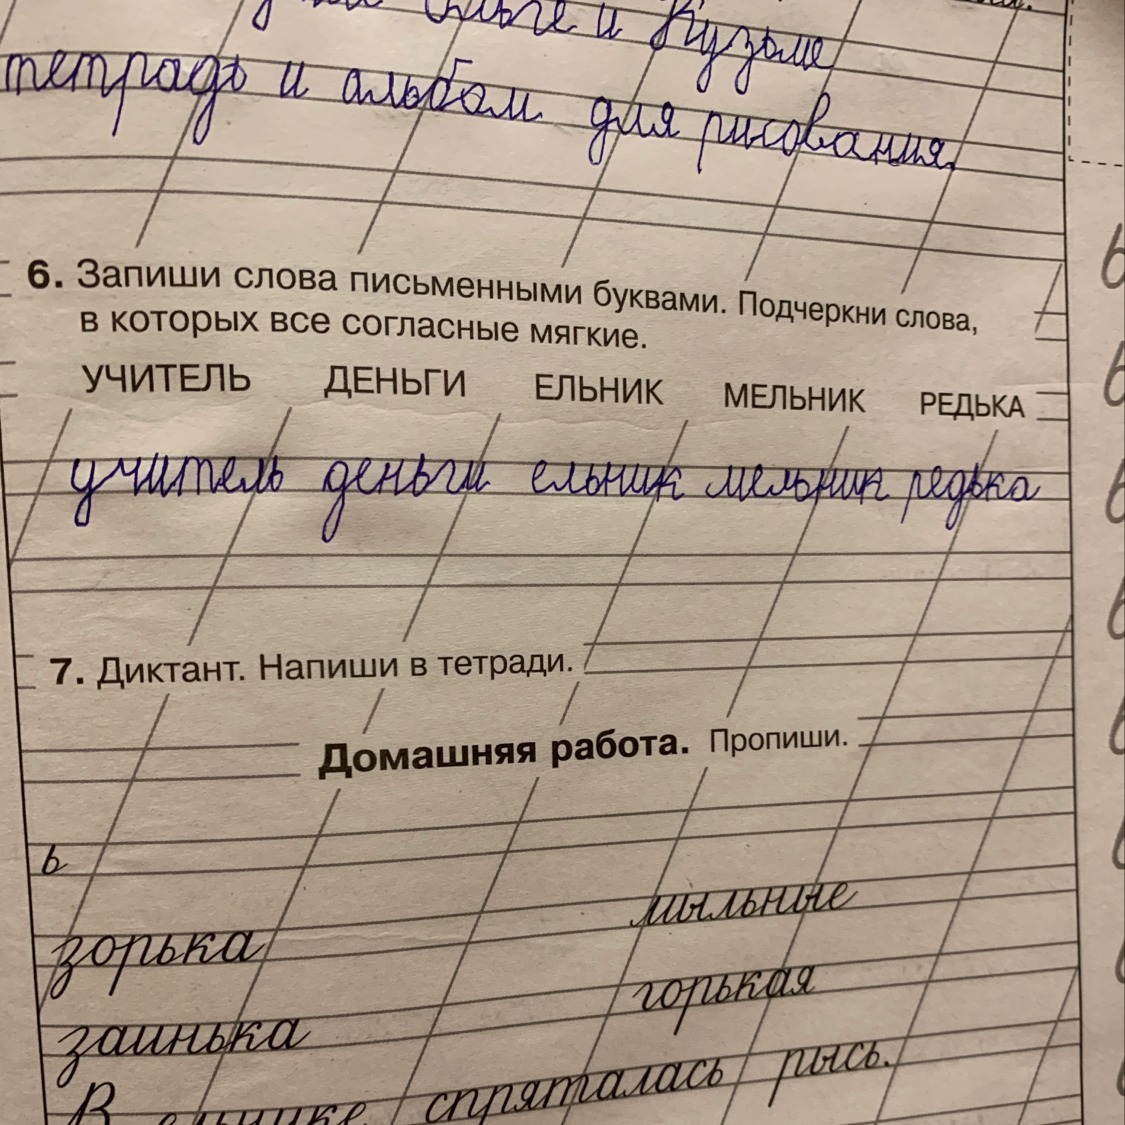 и Кузьме
тетрадь и альбом для рисования.
6. Запиши слова письменными буквами. Подчеркни слова,
в которых все согласные мягкие.
УЧИТЕЛЬ ДЕНЬГИ ЕЛЬНИК МЕЛЬНИК РЕДЬКА
учитель деньги ельник мельник редька
7. Диктант. Напиши в тетради.
Домашняя работа. Пропиши.
ь
мыльные
зорька
горькая
заинька
В ельнике спряталась рысь.